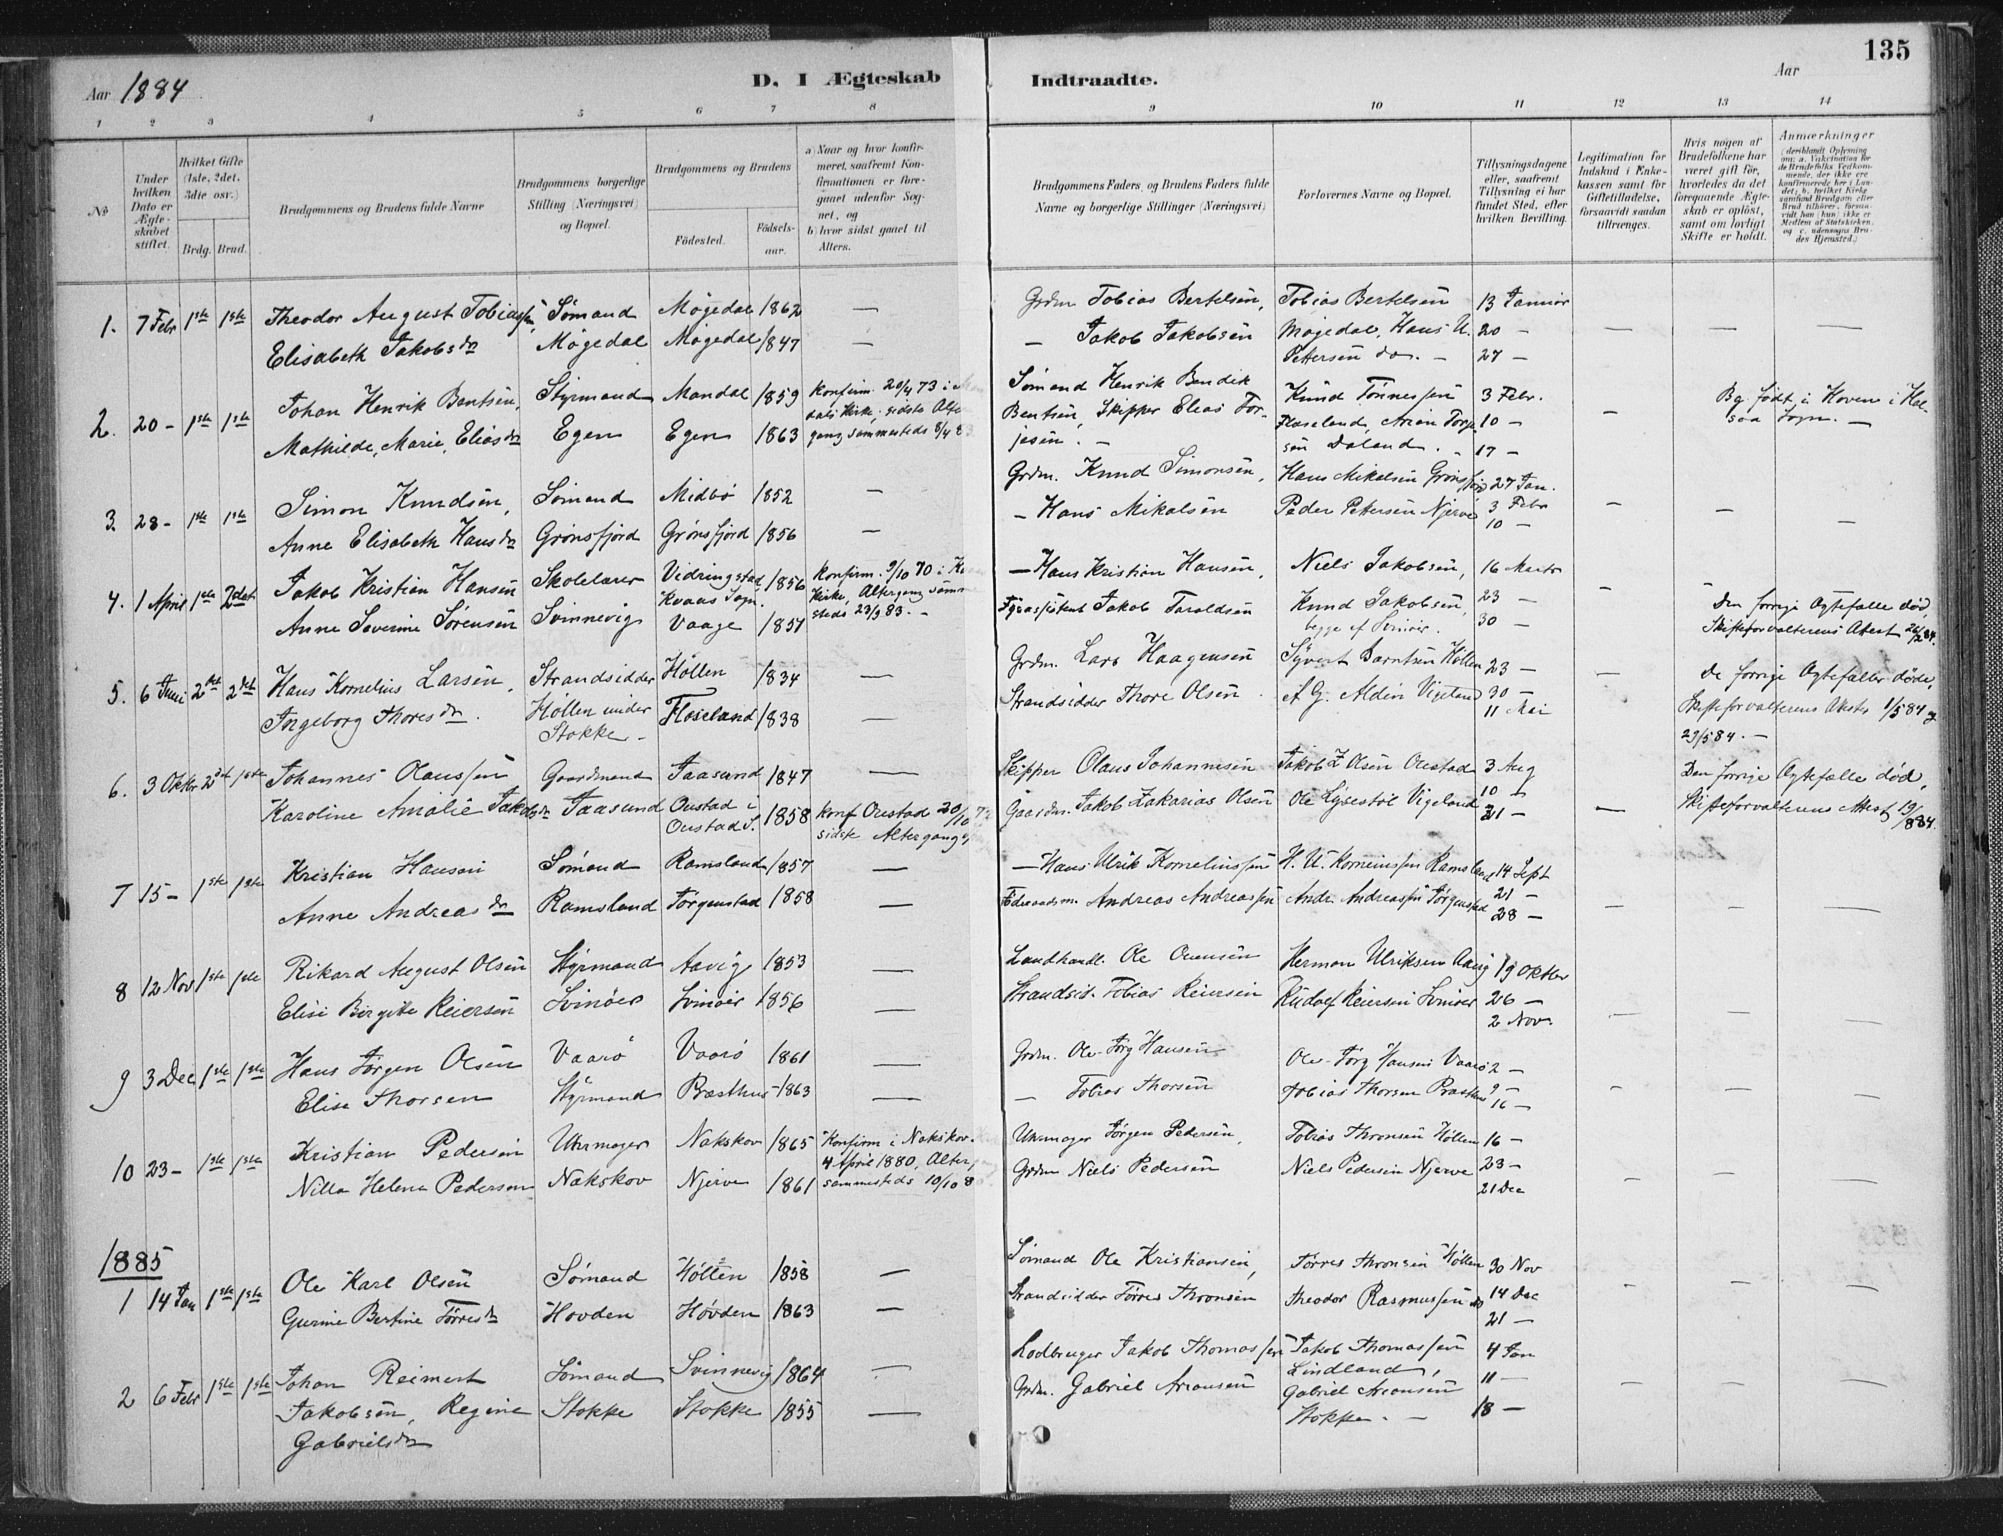 135
Aar 1884
D. I Ægteskab Indtraadte.
Aar
1 2 3 4 5 6 7 8 9 10 11 12 13 14
No
Under hvilken Dato er Ægteskabet stiftet.
Hvilket Gifte (1ste, 2det, 3die osv.)
Brdg. Brud.
Brudgommens og Brudens fulde Navne
Brudgommens borgerlige Stilling (Næringsvei) og Bopæl.
Brudgommens og Brudens
Fødested.
Fødselsaar.
a) Naar og hvor konfirmeret, saafremt Konfirmationen er foregaaet udenfor Sognet, og
b) hvor sidst gaaet til Alters.
Brudgommens Faders, og Brudens Faders fulde Navne og borgerlige Stillinger (Næringsvei)
Forlovernes Navne og Bopæl.
Tillysningsdagene eller, saafremt Tillysning ei har fundet Sted, efter hvilken Bevilling.
Legitimation for Indskud i Enkekassen samt for Giftetilladelse, forsaavidt saadan tiltrænges.
Hvis nogen af Brudefolkene har været gift før, hvorledes da det foregaaende Ægteskab er opløst, samt om lovligt Skifte er holdt.
Anmærkninger
1. 7 Febr 1ste 1ste Theodor August Tobiassen, Sømand Møgedal 1862 — Grdm Tobias Bertelsen, Tobias Bertelsen 13 Januar
Elisabeth Jakobsdr Møgedal Møgedal 1847 — — Jakob Jakobsen Møgedal, Hans U. 20 —
Petersen do. — 27 —
2. 20 — 1ste 1ste Johan Henrik Bentsen, Styrmand Mandal 1859 Konfirm. 20/4 73 i Sømand Henrik Bendik Knud Tønnessen 3 Febr. Bg. født i Hoven i Hal-
dals Kirke, sidste Alter Bentsen, Skipper Elias Tor- Floseland, 10 — saa Sogn. —
Mathilde Marie Eliasdr Egen Egen 1863 gang sammesteds 8/4 83 jesen. — Daland. — 17 —
3. 28 — 1ste 1ste Simon Knudsen, Sømand Midbø 1852 — Grdm. Knud Simonsen, Hans Mikalsen Grønsfjord 27 Jan.
Anne Elisabeth Hansdr Grønsfjord Grønsfjord 1856 — — Hans Mikalsen Peder Petersen Njerve 3 Febr
10 —
4. 1 April 1ste 2det Jakob Kristian Hansen Skolelærer Vidringstad 1856 konfirm. 9/10 70 i — Hans Kristian Hansen, Niels Jakobsen, 16 Marts
Kvaas Sogn. Kirke, Altergang samme 23 — Den forrige Ægtefælle død,
Anne Severine Sørensen Svinnevig Vaage 1857 steds 23/9 83. — Jakob Taraldsen Knud Jakobsen, 30 — Skifteforvalterens Attest
begge af Svinør.
5. 6 Juni 2det 2det Hans Kornelius Larsen, Strandsidder Høllen 1834 — Grdm. Lars Haagensen Syvert Berntsen Høllen 23 — De forrige Ægtefæller døde,
Ingeborg Thoresdr. Høllen under Floseland 1838 — Strandsidder Thore Olsen. A. G. Aldin Vigeland 30 — Skifteforvalterens Attester 1/5 84 og
Stokke — 11 Mai 29/5 84. —
6. 3 Oktbr 2det 1ste Johannes Olaussen Gaardmand Taasund 1847 — Skipper Olaus Johannesen Jakob Z Olsen Oustad 3 Aug Den forrige Ægtefælle død,
Karoline Amalie Jakobsdr Taasund Oustad i 1858 konf Oustad 20/10 Gaardm. Jakob Zakarias Olsen Ole Lysestøl Vigeland 10 — Skifteforvalterens Attest 19/8 84.
Oustad S. sidste Altergang 21 —
7 15 — 1ste 1ste Kristian Hansen Sømand Ramsland 1857 — — Hans Ulrik Korneliussen H. U. Korneliussen Ramsland 14 Sept
Anne Andreasdr Ramsland Jørgenstad 1858 — Andreas Andreassen Andr. Andreassen Jørgenstad 21 —
28 —
8 12 Nov 1ste 1ste Rikard August Olsen Styrmand Aavig 1853 — Landhandl. Ole Ouensen Herman Ulriksen Aavig 19 Oktbr
Elise Birgitte Reiersen Svinøer Svinøer 1856 Strandsid. Tobias Reiersen Rudolf Reiersen Svinøer 26 —
2 Nov.
9 3 Dec 1ste 1ste Hans Jørgen Olsen Vaarø Vaarø 1861 — Grdm. Ole Jørg Hansen Ole Jørg Hansen Vaarø 2 —
Elise Thorsen Styrmand Præsthus 1863 — — Tobias Thorsen Tobias Thorsen Præsthus 9 —
16 —
10 23 — 1ste 1ste Kristian Pedersen Uhrmager Nakskov 1865 Konfirm i Nakskov Uhrmager Jørgen Pedersen, Tobias Thronsen Høllen 16 —
4 April 1880, Alter
Nilla Helene Pedersen Nakskov Njerve 1861 sammesteds 10/10 8 Grdm Niels Pedersen Niels Pedersen Njerve 23 —
21 Dec
1885
1 14 Jan 1ste 1ste Ole Karl Olsen Sømand Høllen 1858 — Sømand Ole Kristiansen, Tørres Thronsen Høllen 30 Nov
Gurine Bertine Tørresdr Hovden Hovden 1863 — Strandsidder Tørres Thronsen Theodor Rasmussen do 14 Dec
21 —
2 6 Febr 1ste 1ste Johan Reimert Sømand Svinnevig 1864 — Lodbruger Jakob Thomassen Jakob Thomassen 4 Jan
Lindland, 11 —
Jakobsen, Regine Stokke Stokke 1855 — Grdm. Gabriel Aronsen Gabriel Aronsen
Gabrielsdr Stokke. — 18 —